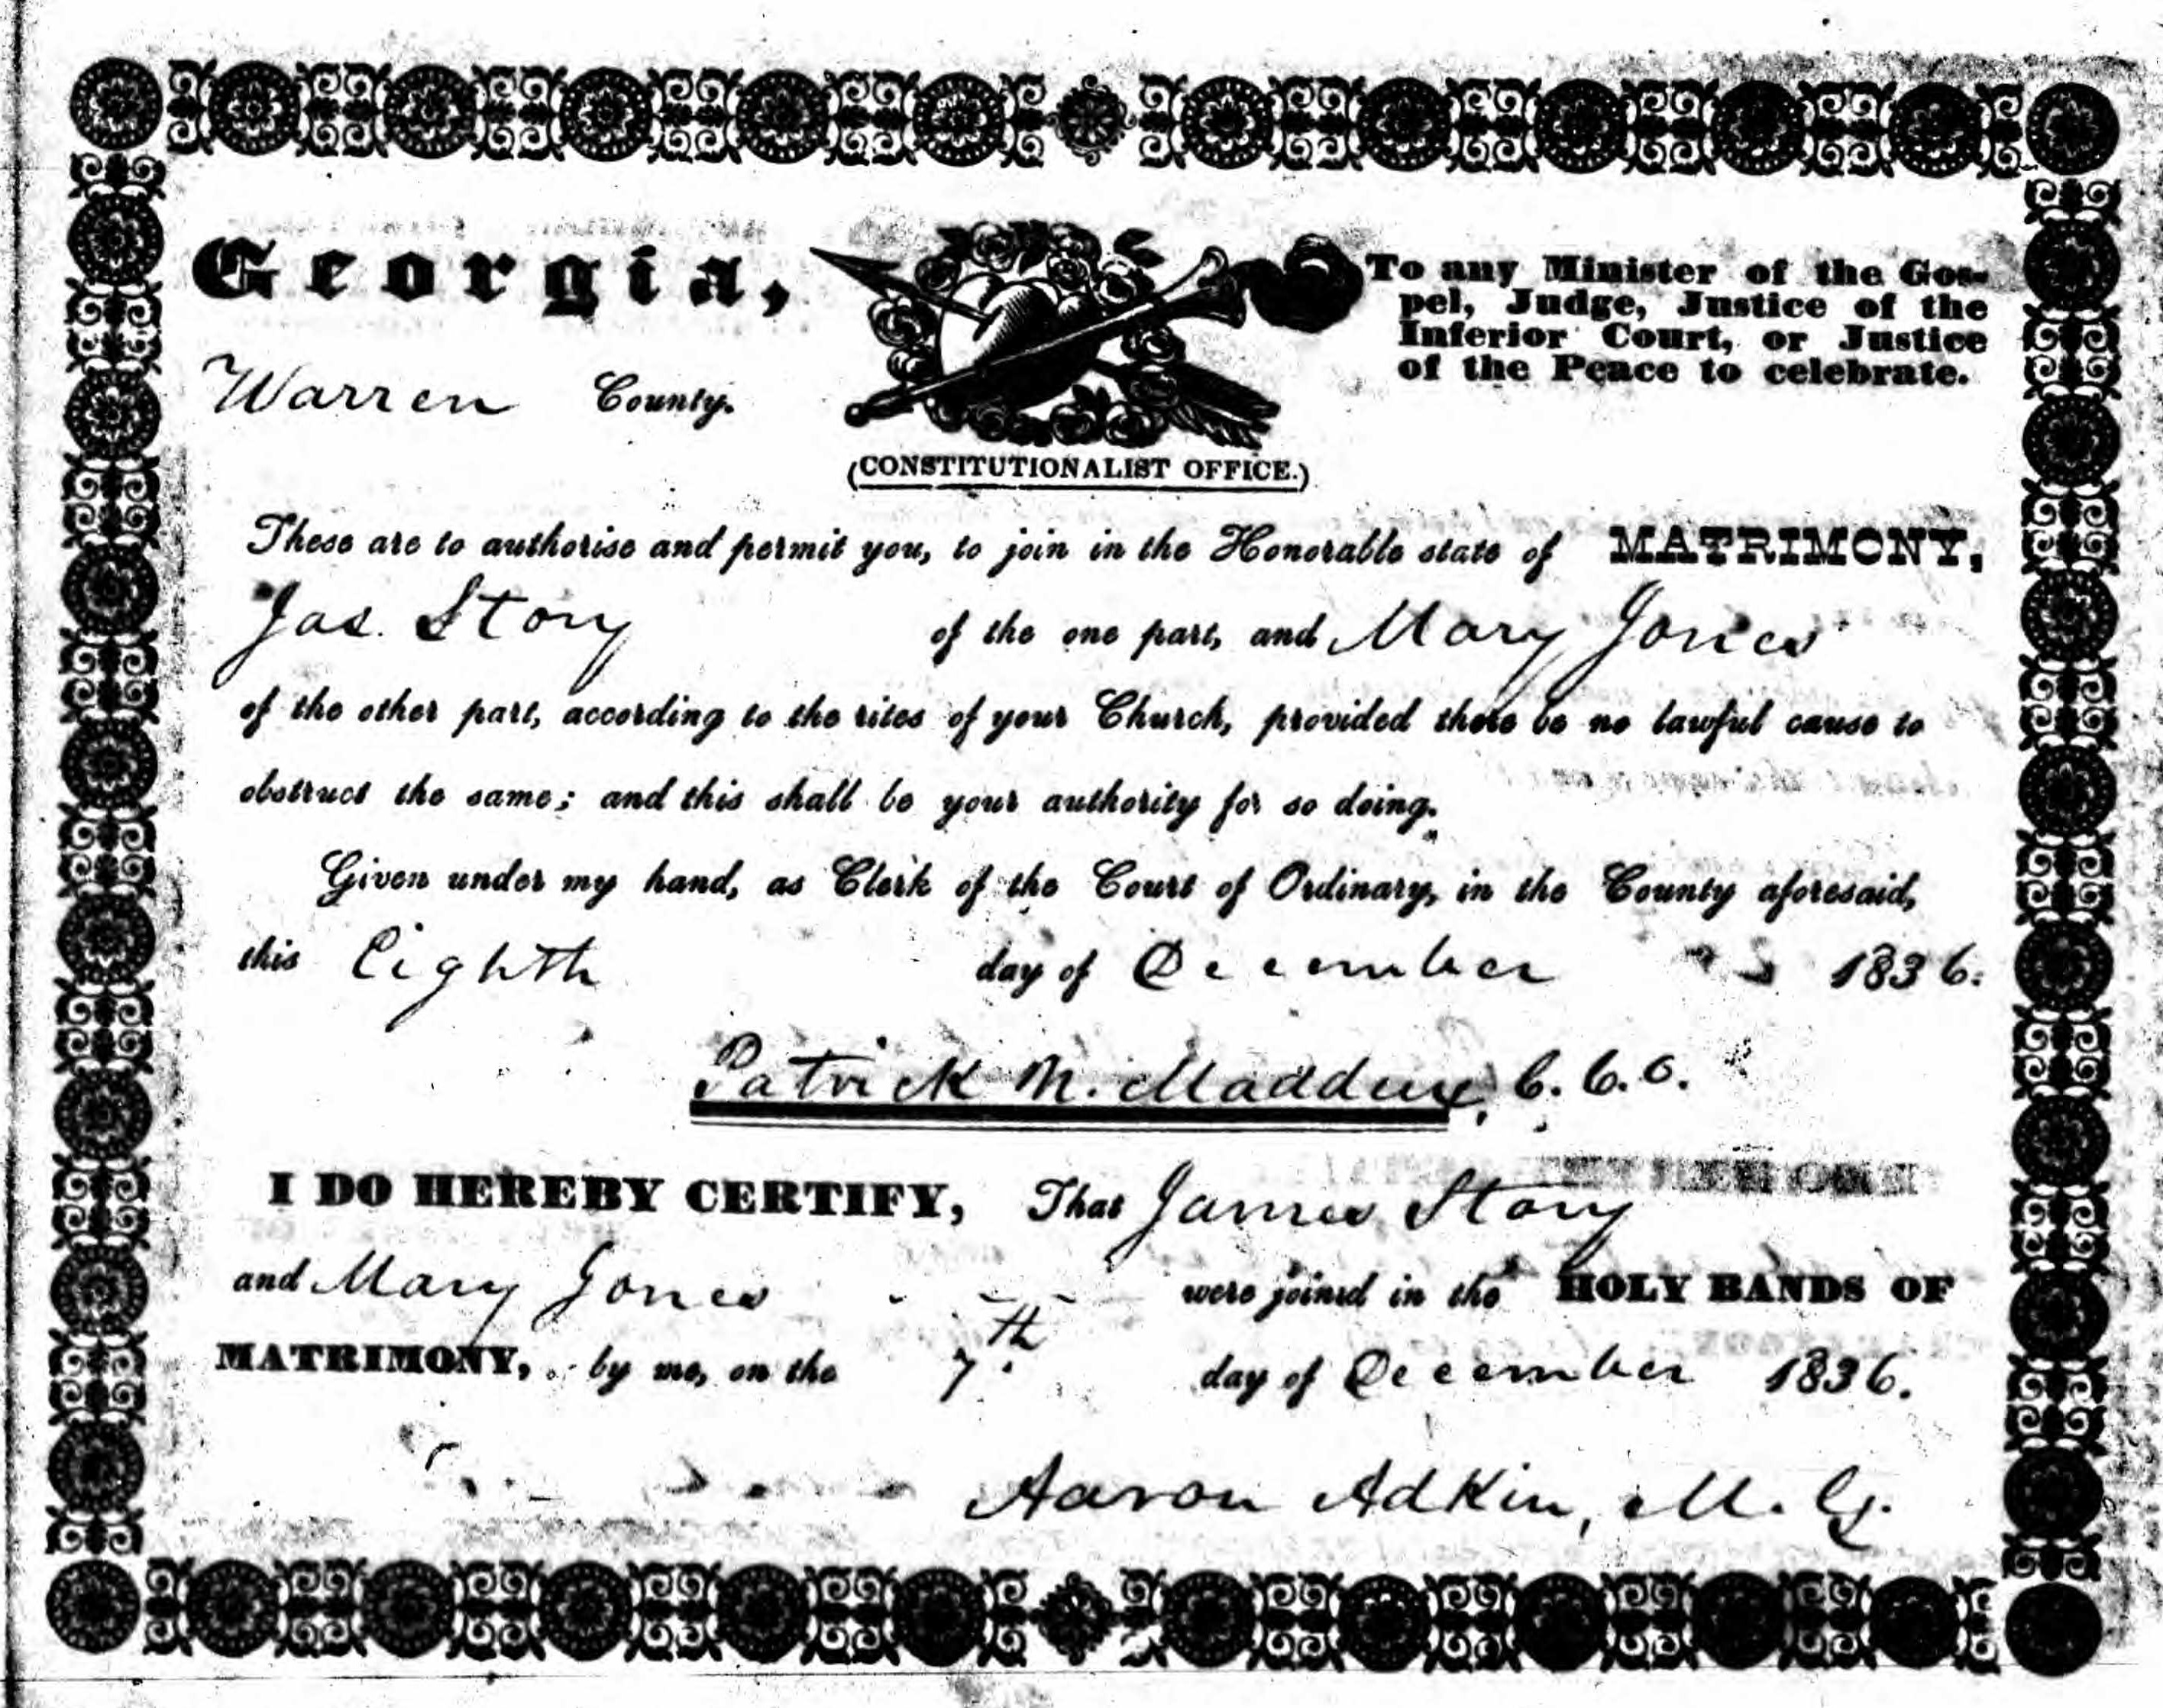 Georgia,
To any Minister of the Gos-
pel, Judge, Justice of the
Inferior Court, or Justice
of the Peace to celebrate.
Warren County.
(CONSTITUTIONALIST OFFICE.)
These are to authorise and permit you, to join in the Honorable state of MATRIMONY,
Jas. Story of the one part, and Mary Jones
of the other part, according to the rites of your Church, provided there be no lawful cause to
obstruct the same; and this shall be your authority for so doing.
Given under my hand, as Clerk of the Court of Ordinary, in the County aforesaid,
this Eighth day of December 1836.
Patrick M. Maddux, C. C. O.
I DO HEREBY CERTIFY, That James Story
and Mary Jones were joined in the HOLY BANDS OF
MATRIMONY, by me, on the 7th. day of December 1836.
Aaron Adkin, M. G.